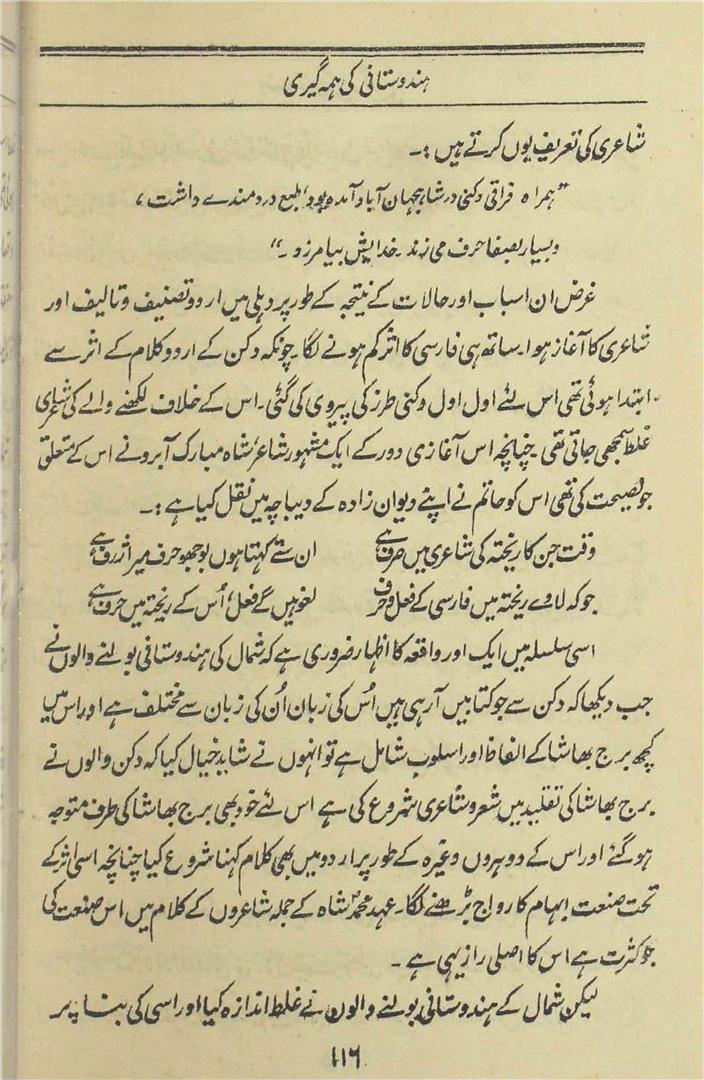 ہندوستانی کی ہمہ گیری
شاعری کی تعریف یوں کرتے ہیں :۔
”ہمراہ فراقی دکنی در شاہجہاں آباد آمدہ بود، طبع درد مندے داشت ،
وبسیار بصفا حرف می زند ۔ خدایش بیامرزد ۔“
غرض ان اسباب اور حالات کے نتیجہ کے طور پر دہلی میں اردو تصنیف و تالیف اور
شاعری کا آغاز ہوا۔ ساتھ ہی فارسی کا اثر کم ہونے لگا۔ چونکہ دکن کے اردو کلام کے اثر سے
ابتدا ہوئی تھی اس لئے اول اول دکنی طرز کی پیروی کی گئی۔ اس کے خلاف لکھنے والے کی شاعری
غلط سمجھی جاتی تھی ۔ چنانچہ اس آغازی دور کے ایک مشہور شاعر شاہ مبارک آبرو نے اس کے متعلق
جو نصیحت کی تھی اس کو حاتم نے اپنے دیوان زادہ کے دیباچہ میں نقل کیا ہے :۔
وقت جن کا ریختہ کی شاعری میں صرف ہے ان ستے کہتا ہوں بوجھو حرف میرا ژرف ہے
جو کہ لاوے ریختہ میں فارسی کے فعل و حرف لغو ہیں گے فعل، اُس کے ریختہ میں حرف ہے
اسی سلسلہ میں ایک اور واقعہ کا اظہار ضروری ہے کہ شمال کی ہندوستانی بولنے والوں نے
جب دیکھا کہ دکن سے جو کتابیں آرہی ہیں اُس کی زبان اُن کی زبان سے مختلف ہے اور اس میں
کچھ برج بھاشا کے الفاظ اور اسلوب شامل ہے تو انہوں نے شاید خیال کیا کہ دکن والوں نے
برج بھاشا کی تقلید میں شعر و شاعری شروع کی ہے اس لئے خود بھی برج بھاشا کی طرف متوجہ
ہوگئے اور اس کے دوہروں وغیرہ کے طور پر اردو میں بھی کلام کہنا شروع کیا چنانچہ اسی اثر کے
تحت صنعت ایہام کا رواج بڑھنے لگا۔ عہد محمد شاہ کے جملہ شاعروں کے کلام میں اس صنعت کی
جو کثرت ہے اس کا اصلی راز یہی ہے ۔
لیکن شمال کے ہندوستانی بولنے والوں نے غلط اندازہ کیا اور اسی کی بنا پر
۱۱۶